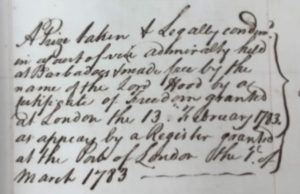 A Prize taken & Legally condemd.
in a Court of vice admiralty held
at Barbadoes & made free by the
name of the Lord Hood by a
of Freedom granted
at London the 13. February 1783.
as appears by a Register granted
at the Port of London the 1st. of
March 1783